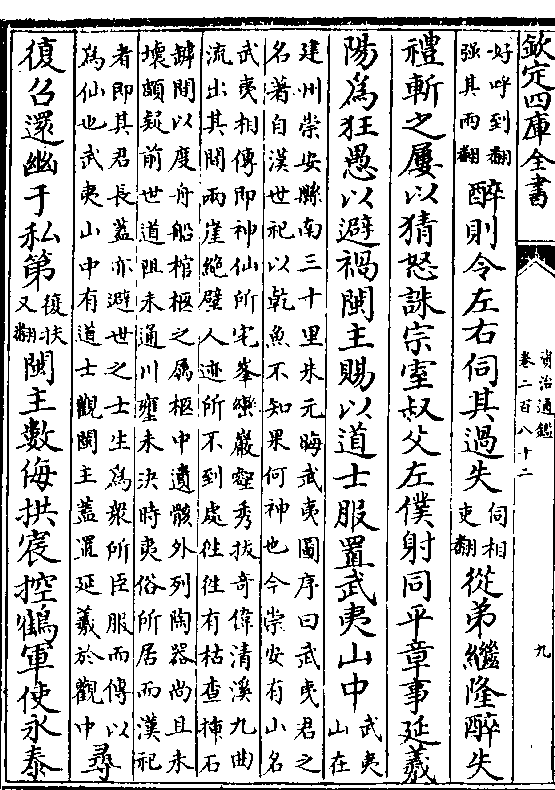 欽定四庫全書
資治通鑑
卷二百八十二
九
好呼到翻
強其兩翻
醉則令左右伺其過失
伺相
吏翻
從弟繼隆醉失
禮斬之屢以猜怒誅宗室叔父左僕射同平章事延羲
陽為狂愚以避禍閩主賜以道士服置武夷山中
武夷
山在
建州崇安縣南三十里朱元晦武夷圖序曰武夷君之
名著自漢世祀以乾魚不知果何神也今崇安有小名
武夷相傳即神仙所宅峯巒巖壑秀拔奇偉清溪九曲
流出其間兩崖絶壁人迹所不到處往往有枯查揷石
罅間以度舟船棺柩之屬柩中遺骸外列陶器尚且未
壞頗疑前世道阻未通川壅未決時夷俗所居而漢祀
者即其君長蓋亦避世之士生為衆所臣服而傳以
為仙也武夷山中有道士觀閩主蓋置延羲於觀中
尋
復召還幽于私第
復扶
又翻
閩主數侮拱宸控鶴軍使永泰